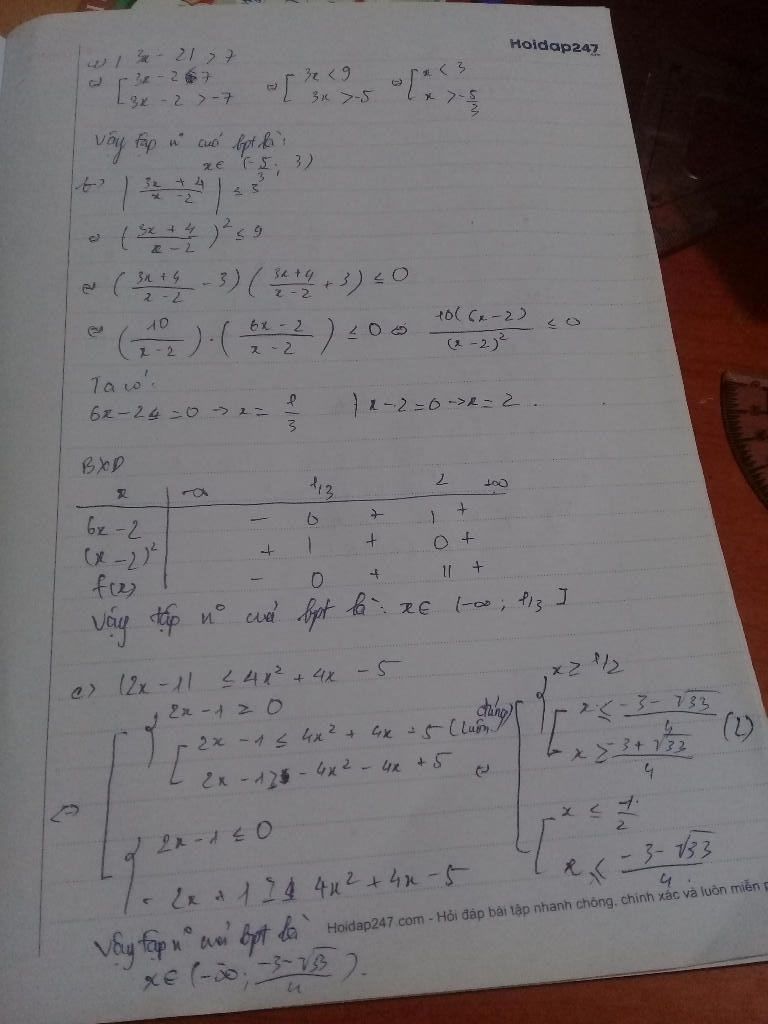 Hoidap247
a) |3x - 2| > 7
⇔ [ 3x - 2 < 7 ⇔ [ 3x < 9 ⇔ [ x < 3
3x - 2 > -7 3x > -5 x > -5/3
Vậy tập n° của bpt là:
x ∈ (-5/3; 3)
b) |(3x + 4)/(x - 2)| ≤ 3
⇔ ((3x + 4)/(x - 2))² ≤ 9
⇔ ((3x + 4)/(x - 2) - 3)((3x + 4)/(x - 2) + 3) ≤ 0
⇔ (10/(x - 2)) . ((6x - 2)/(x - 2)) ≤ 0 ⇔ 10(6x - 2)/(x - 2)² ≤ 0
Ta có:
6x - 2 = 0 → x = 1/3 | x - 2 = 0 → x = 2.
BXD
x -∞ 1/3 2 +∞
6x - 2 - 0 + | +
(x - 2)² + | + 0 +
f(x) - 0 + || +
Vậy tập n° của bpt là: x ∈ (-∞; 1/3]
c) |2x - 1| ≤ 4x² + 4x - 5
⇔ [ { 2x - 1 ≥ 0
[ 2x - 1 ≤ 4x² + 4x - 5 (luôn đúng)
2x - 1 ≥ - 4x² - 4x + 5
{ 2x - 1 ≤ 0
- 2x + 1 ≥ 4x² + 4x - 5
⇔ [ { x ≥ 1/2
[ x ≤ (-3 - √33)/4
x ≥ (-3 + √33)/4 (L)
[ x ≤ 1/2
x ≤ (-3 - √33)/4
Hoidap247.com - Hỏi đáp bài tập nhanh chóng, chính xác và luôn miễn p
Vậy tập n° của bpt là
x ∈ (-∞; (-3 - √33)/4).